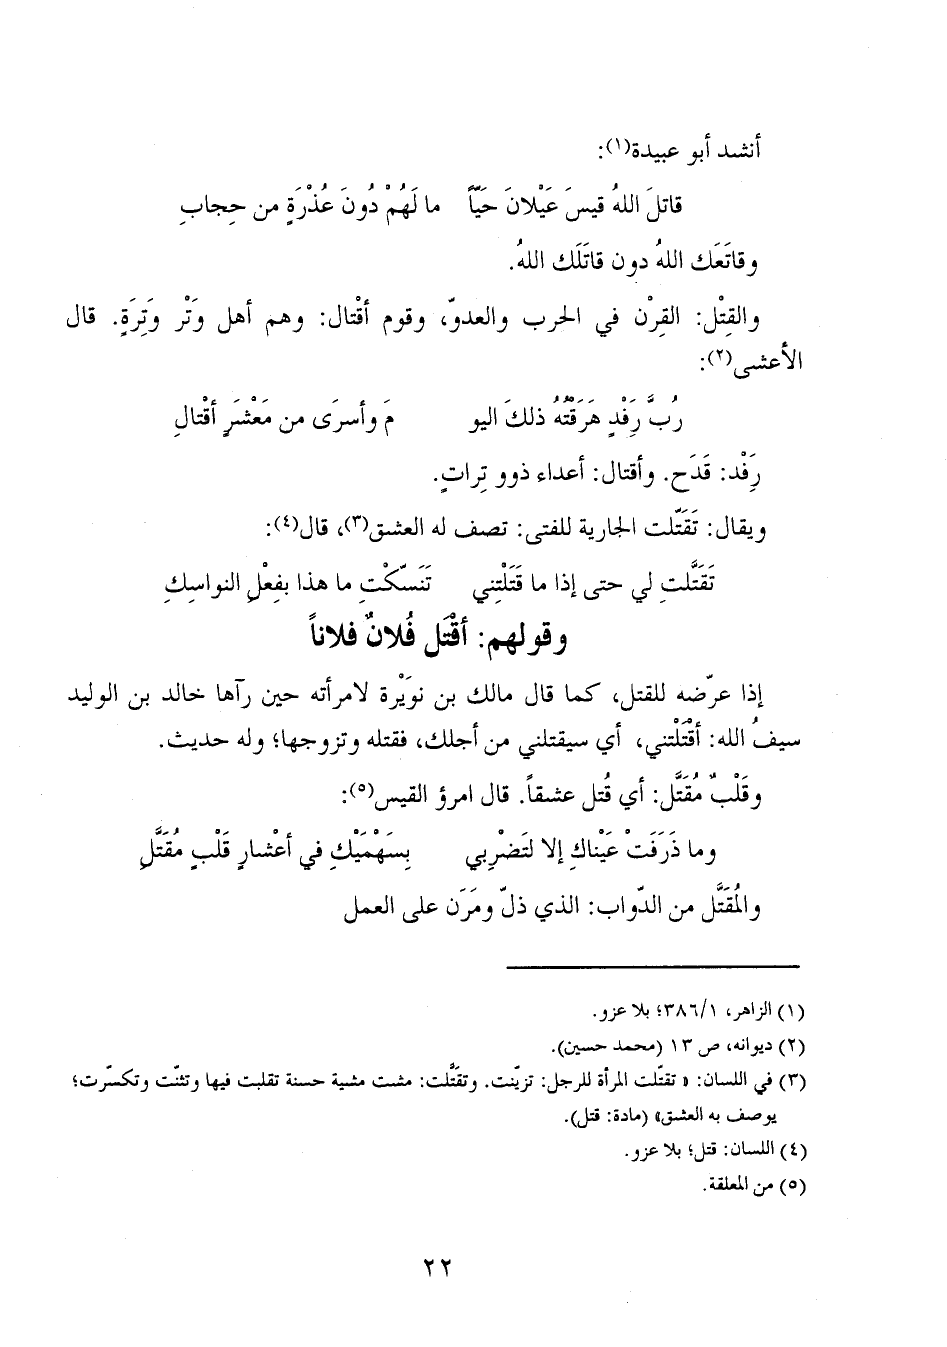 أنشد أبو عبيدة(١):
قاتلَ اللهُ قيسَ عَيْلانَ حَيّاً ما لَهُمْ دُونَ عُذْرَةٍ من حِجابِ
وقاتَعَك اللهُ دون قاتَلَك اللهُ.
والقِتْل: القِرْن في الحرب والعدوّ، وقوم أقْتال: وهم أهل وَتْر وَتِرَةٍ. قال
الأعشى(٢):
رُبَّ رَِفْدٍ هَرَقْتُهُ ذلكَ اليو مَ وأسرَى من مَعْشَرٍ أقْتالِ
رَِفْد: قَدَح. وأقتال: أعداء ذوو تِراتٍ.
ويقال: تَقَتّلت الجارية للفتى: تصف له العشق(٣)، قال(٤):
تَقَتَّلتِ لي حتى إذا ما قَتَلْتِني تَنَسّكْتِ ما هذا بفِعْلِ النواسِكِ
وقولهم: أقْتَل فُلانٌ فلاناً
إذا عرّضه للقتل، كما قال مالك بن نوَيْرة لامرأته حين رآها خالد بن الوليد
سيفُ الله: أقْتَلْتني، أي سيقتلني من أجلك، فقتله وتزوجها؛ وله حديث.
وقَلْبٌ مُقَتَّل: أي قُتل عشقاً. قال امرؤ القيس(٥):
وما ذَرَفَتْ عَيْناكِ إلا لتَضْرِبي بِسَهْمَيْكِ في أعْشارِ قَلْبٍ مُقَتَّلِ
والمُقَتَّل من الدّواب: الذي ذلّ ومَرَن على العمل
(١) الزاهر، ٣٨٦/١؛ بلا عزو.
(٢) ديوانه، ص ١٣ (محمد حسين).
(٣) في اللسان: «تقتّلت المرأة للرجل: تزيّنت. وتقتَّلت: مشت مشية حسنة تقلبت فيها وتثنّت وتكسّرت؛
يوصف به العشق» (مادة: قتل).
(٤) اللسان: قتل؛ بلا عزو.
(٥) من المعلقة.
٢٢